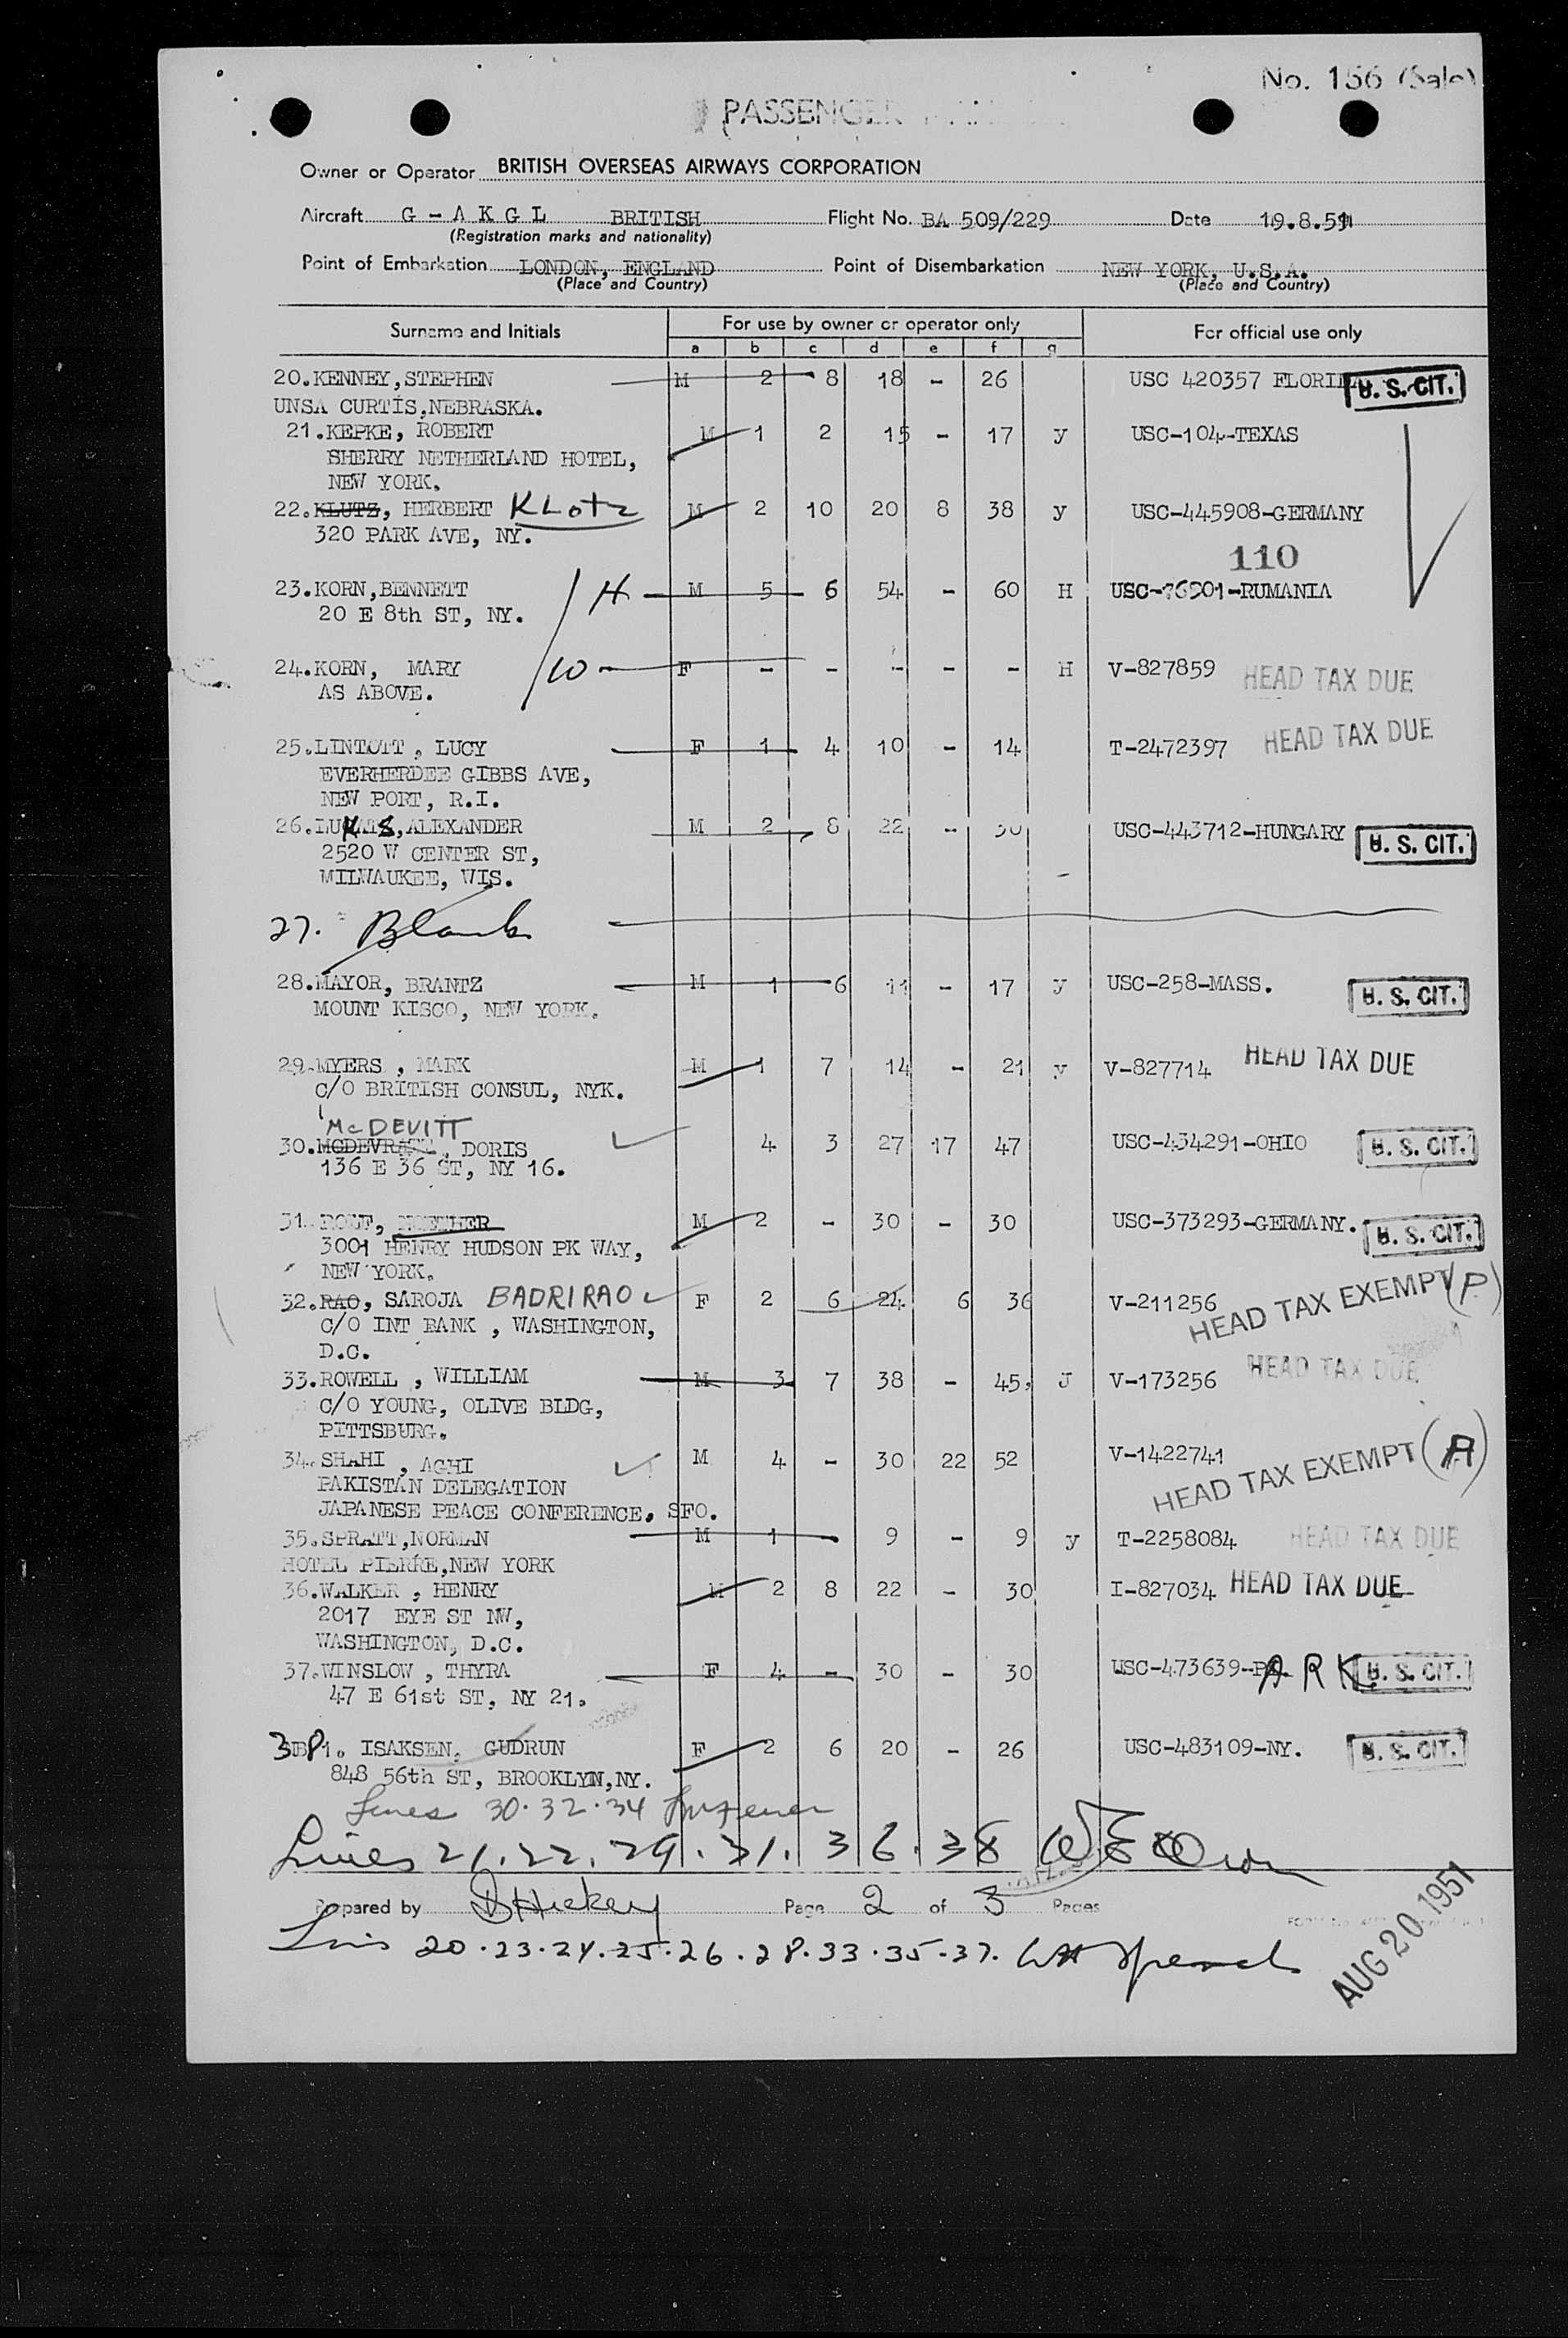 No. 156 (Sale)
PASSENGER
Owner or Operator BRITISH OVERSEAS AIRWAYS CORPORATION
Aircraft G - A K G L BRITISH Flight No. BA 509/229 Date 19.8.51
(Registration marks and nationality)
Point of Embarkation LONDON, ENGLAND Point of Disembarkation NEW YORK, U.S.A.
(Place and Country) (Place and Country)
Surname and Initials For use by owner or operator only For official use only
a b c d e f g
20.KENNEY,STEPHEN M 2 8 18 - 26 USC 420357 FLORIDA U. S. CIT.
UNSA CURTIS,NEBRASKA.
21.KEPKE, ROBERT M 1 2 15 - 17 y USC-104-TEXAS
SHERRY NETHERLAND HOTEL,
NEW YORK.
22.KLUTZ, HERBERT KLotz M 2 10 20 8 38 y USC-445908-GERMANY
320 PARK AVE, NY.
110
23.KORN,BENNETT H M 5 6 54 - 60 H USC-76901-RUMANIA
20 E 8th ST, NY.
24.KORN, MARY W F - - - - - H V-827859 HEAD TAX DUE
AS ABOVE.
25.LINTOTT, LUCY F 1 4 10 - 14 T-2472397 HEAD TAX DUE
EVERHERDEE GIBBS AVE,
NEW PORT, R.I.
26. ALEXANDER M 2 8 22 - 30 USC-443712-HUNGARY U. S. CIT.
2520 W CENTER ST,
MILWAUKEE, WIS.
27. Blank
28.MAYOR, BRANTZ M 1 6 11 - 17 y USC-258-MASS. U. S. CIT.
MOUNT KISCO, NEW YORK.
29.MYERS , MARK M 1 7 14 - 21 y V-827714 HEAD TAX DUE
C/O BRITISH CONSUL, NYK.
McDEVITT
30. DORIS 4 3 27 17 47 USC-434291-OHIO U. S. CIT.
136 E 36 ST, NY 16.
31. M 2 - 30 - 30 USC-373293-GERMANY. U. S. CIT.
3001 HENRY HUDSON PK WAY,
NEW YORK.
32.RAO, SAROJA BADRIRAO F 2 6 24 6 36 V-211256 HEAD TAX EXEMPT (P)
C/O INT BANK , WASHINGTON,
D.C.
33.ROWELL , WILLIAM M 3 7 38 - 45, J V-173256 HEAD TAX DUE
C/O YOUNG, OLIVE BLDG,
PITTSBURG.
34.SHAHI , AGHI M 4 - 30 22 52 V-1422741 HEAD TAX EXEMPT (A)
PAKISTAN DELEGATION
JAPANESE PEACE CONFERENCE, SFO.
35.SPRATT,NORMAN M 1 - 9 - 9 y T-2258084 HEAD TAX DUE
HOTEL PIERRE,NEW YORK
36.WALKER , HENRY M 2 8 22 - 30 I-827034 HEAD TAX DUE
2017 EYE ST NW,
WASHINGTON, D.C.
37.WINSLOW , THYRA F 4 - 30 - 30 USC-473639- ARK U. S. CIT.
47 E 61st ST, NY 21.
38. ISAKSEN, GUDRUN F 2 6 20 - 26 USC-483109-NY. U. S. CIT.
848 56th ST, BROOKLYN,NY.
Lines 30.32.34
Lines 21.22.29.31.36.38
Prepared by Page 2 of 3 Pages
20.23.24.25.26.28.33.35-37.
AUG 20 1951